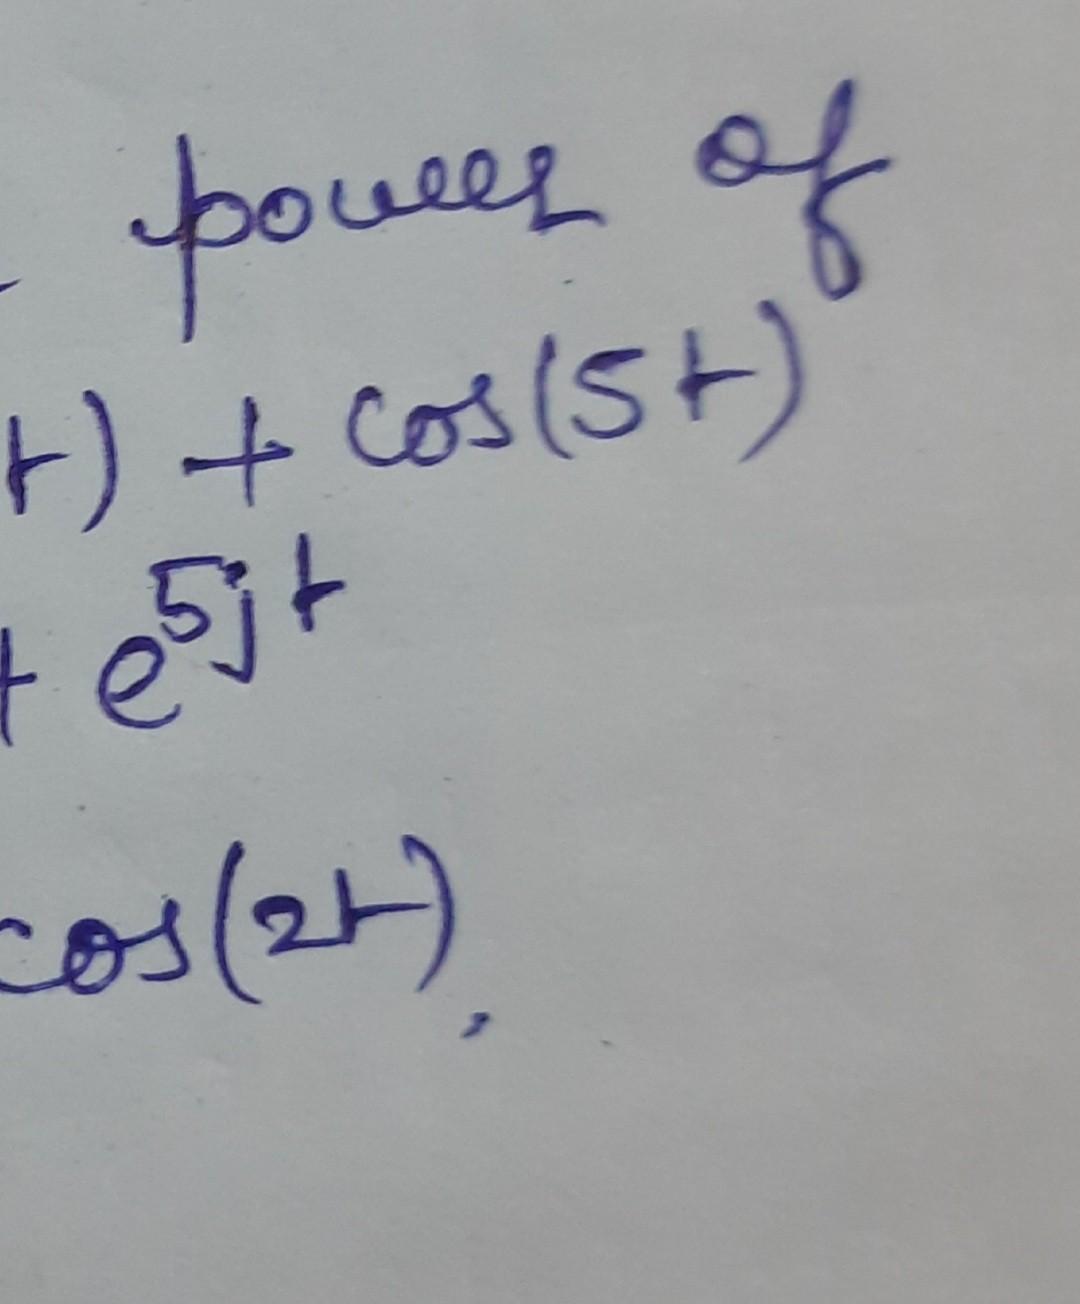 power of
t) + cos(5t)
+ e^5jt
cos(2t).